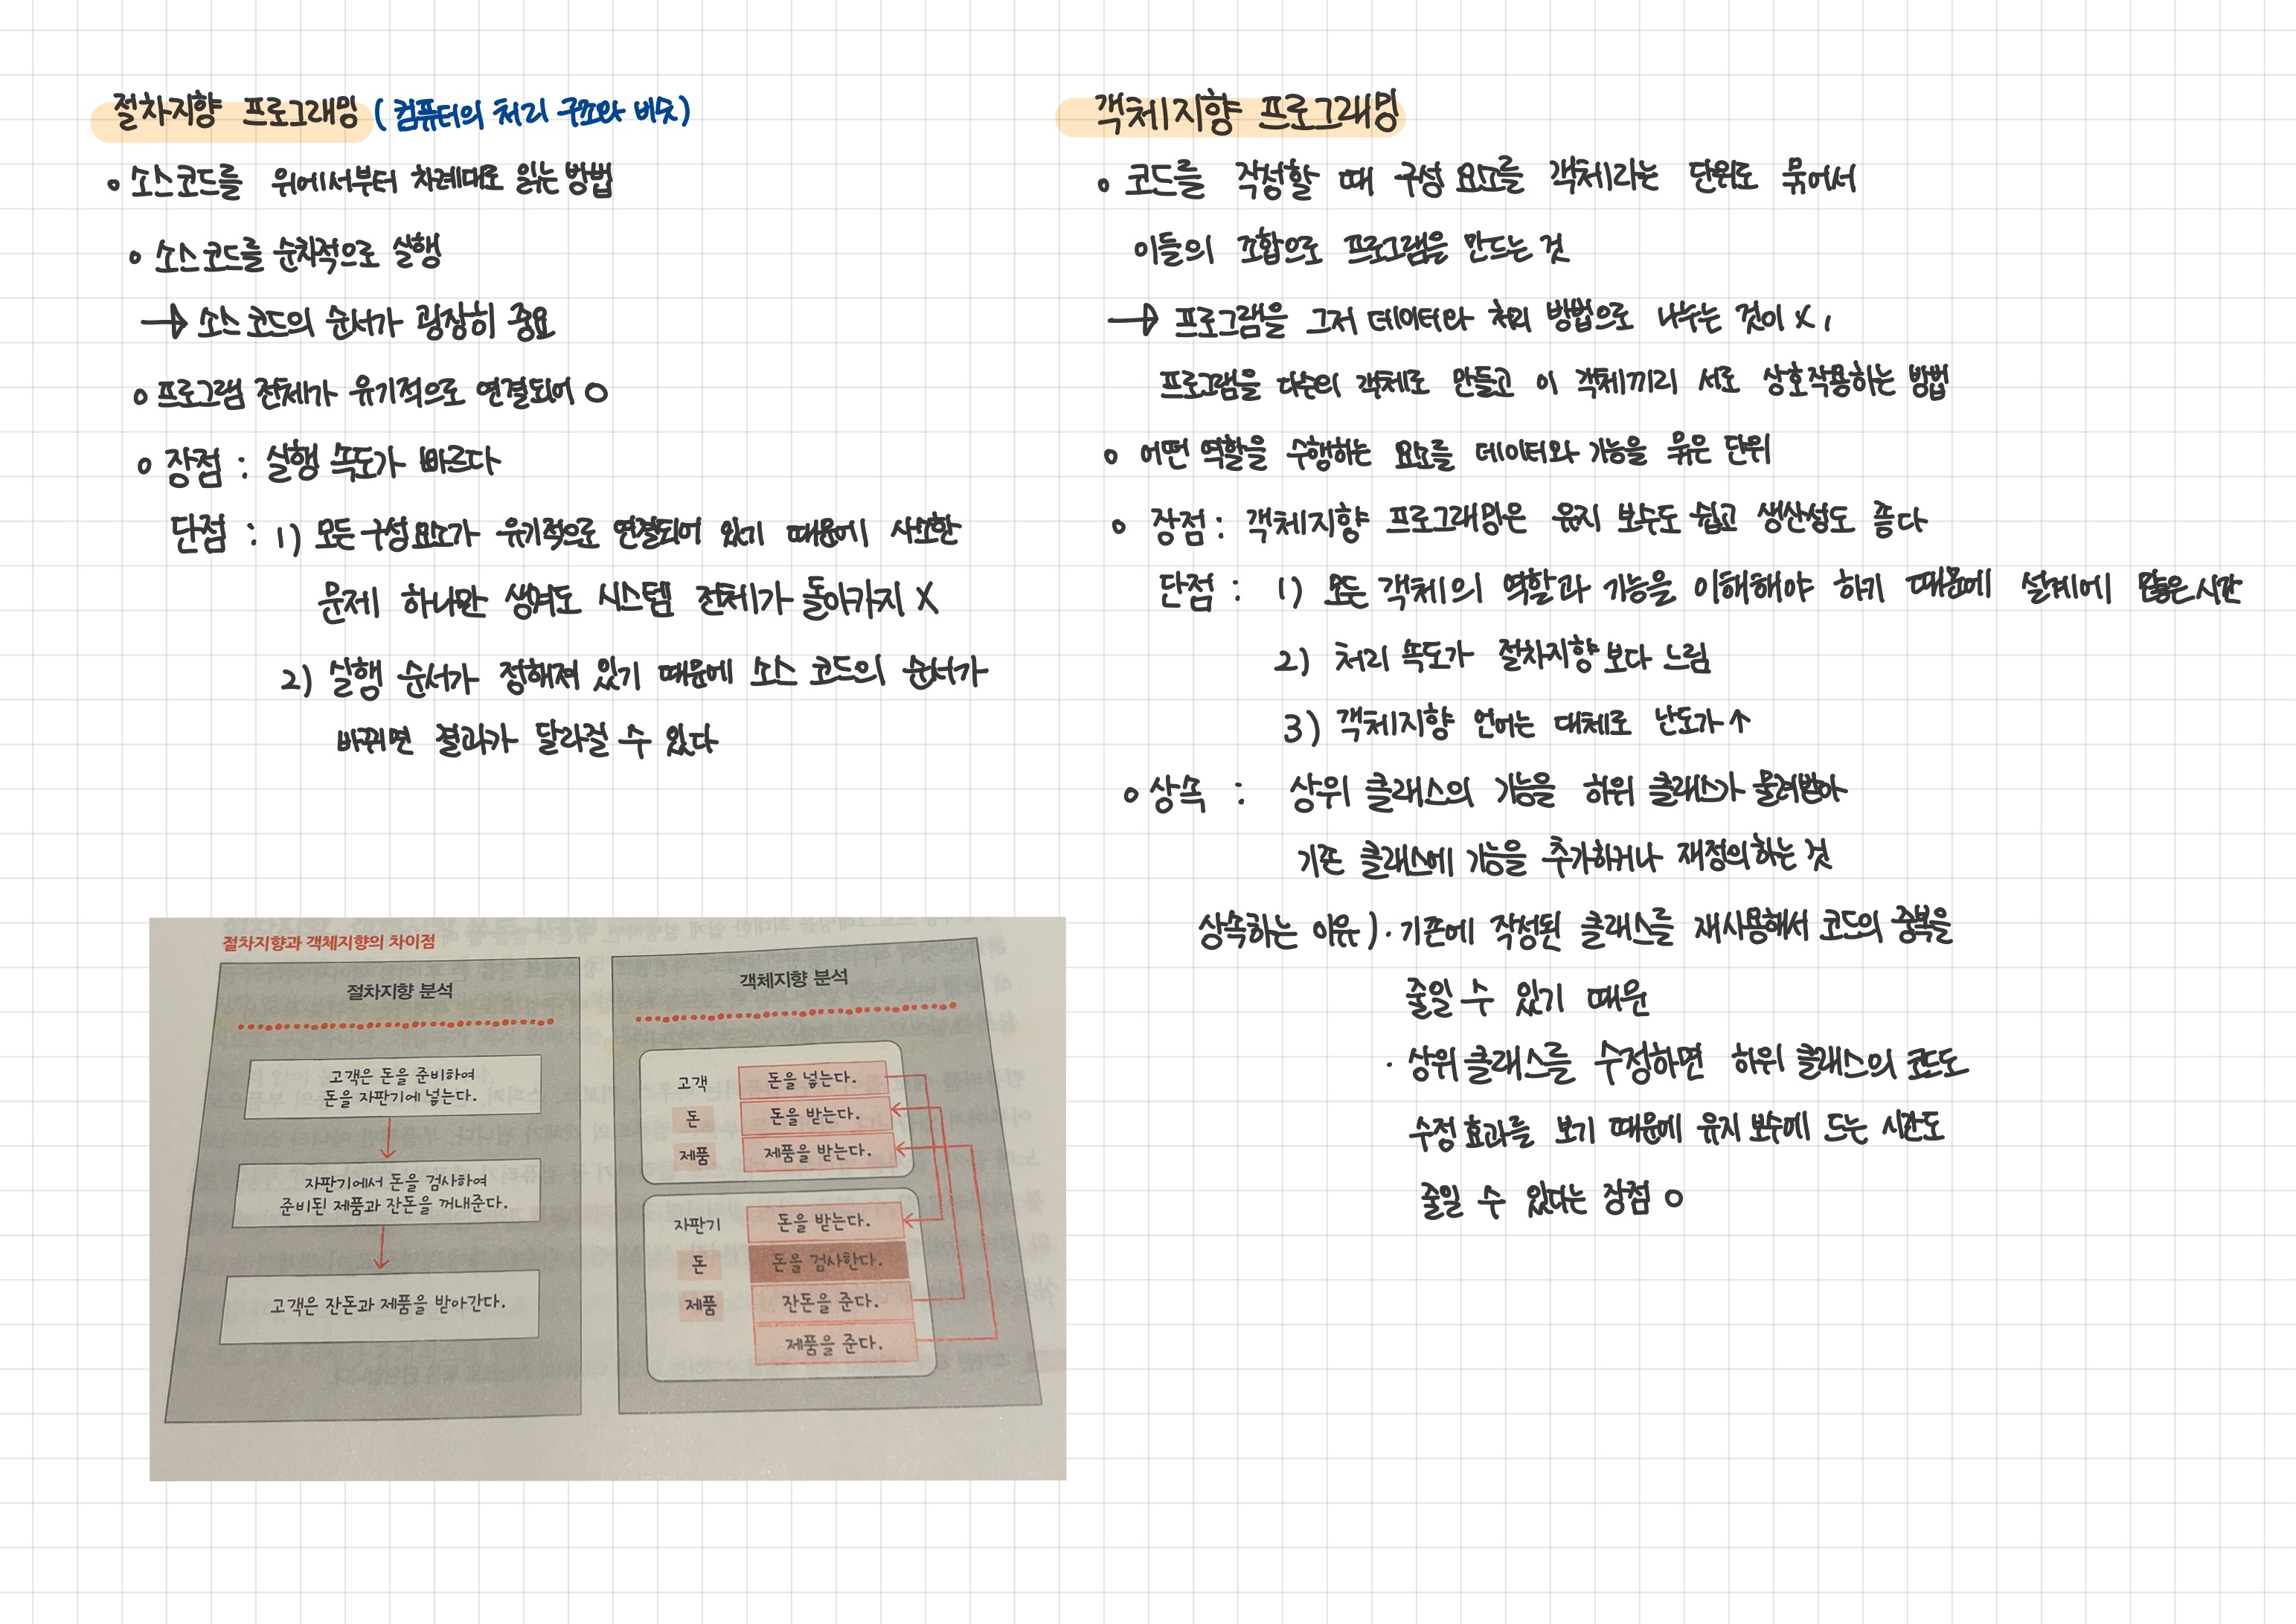 절차지향 프로그래밍 (컴퓨터의 처리 구조와 비슷)
◦ 소스코드를 위에서부터 차례대로 읽는 방법
◦ 소스 코드를 순차적으로 실행
→ 소스 코드의 순서가 굉장히 중요
◦ 프로그램 전체가 유기적으로 연결되어 O
◦ 장점 : 실행 속도가 빠르다
단점 : 1) 모든 구성요소가 유기적으로 연결되어 있기 때문에 사소한
문제 하나만 생겨도 시스템 전체가 돌아가지 X
2) 실행 순서가 정해져 있기 때문에 소스 코드의 순서가
바뀌면 결과가 달라질 수 있다
절차지향과 객체지향의 차이점
절차지향 분석
고객은 돈을 준비하여
돈을 자판기에 넣는다.
자판기에서 돈을 검사하여
준비된 제품과 잔돈을 꺼내준다.
고객은 잔돈과 제품을 받아간다.
객체지향 분석
고객 돈을 넣는다.
돈 돈을 받는다.
제품 제품을 받는다.
자판기 돈을 받는다.
돈 돈을 검사한다.
제품 잔돈을 준다.
제품을 준다.
객체지향 프로그래밍
◦ 코드를 작성할 때 구성 요소를 객체라는 단위로 묶어서
이들의 조합으로 프로그램을 만드는 것
→ 프로그램을 그저 데이터와 처리 방법으로 나누는 것이 X,
프로그램을 다수의 객체로 만들고 이 객체끼리 서로 상호작용하는 방법
◦ 어떤 역할을 수행하는 요소를 데이터와 기능을 묶은 단위
◦ 장점 : 객체지향 프로그래밍은 유지 보수도 쉽고 생산성도 좋다
단점 : 1) 모든 객체의 역할과 기능을 이해해야 하기 때문에 설계에 많은 시간
2) 처리 속도가 절차지향보다 느림
3) 객체지향 언어는 대체로 난도가 ↑
◦ 상속 : 상위 클래스의 기능을 하위 클래스가 물려받아
기존 클래스에 기능을 추가하거나 재정의하는 것
상속하는 이유) · 기존에 작성된 클래스를 재사용해서 코드의 중복을
줄일 수 있기 때문
· 상위 클래스를 수정하면 하위 클래스의 코드도
수정 효과를 보기 때문에 유지 보수에 드는 시간도
줄일 수 있다는 장점 O